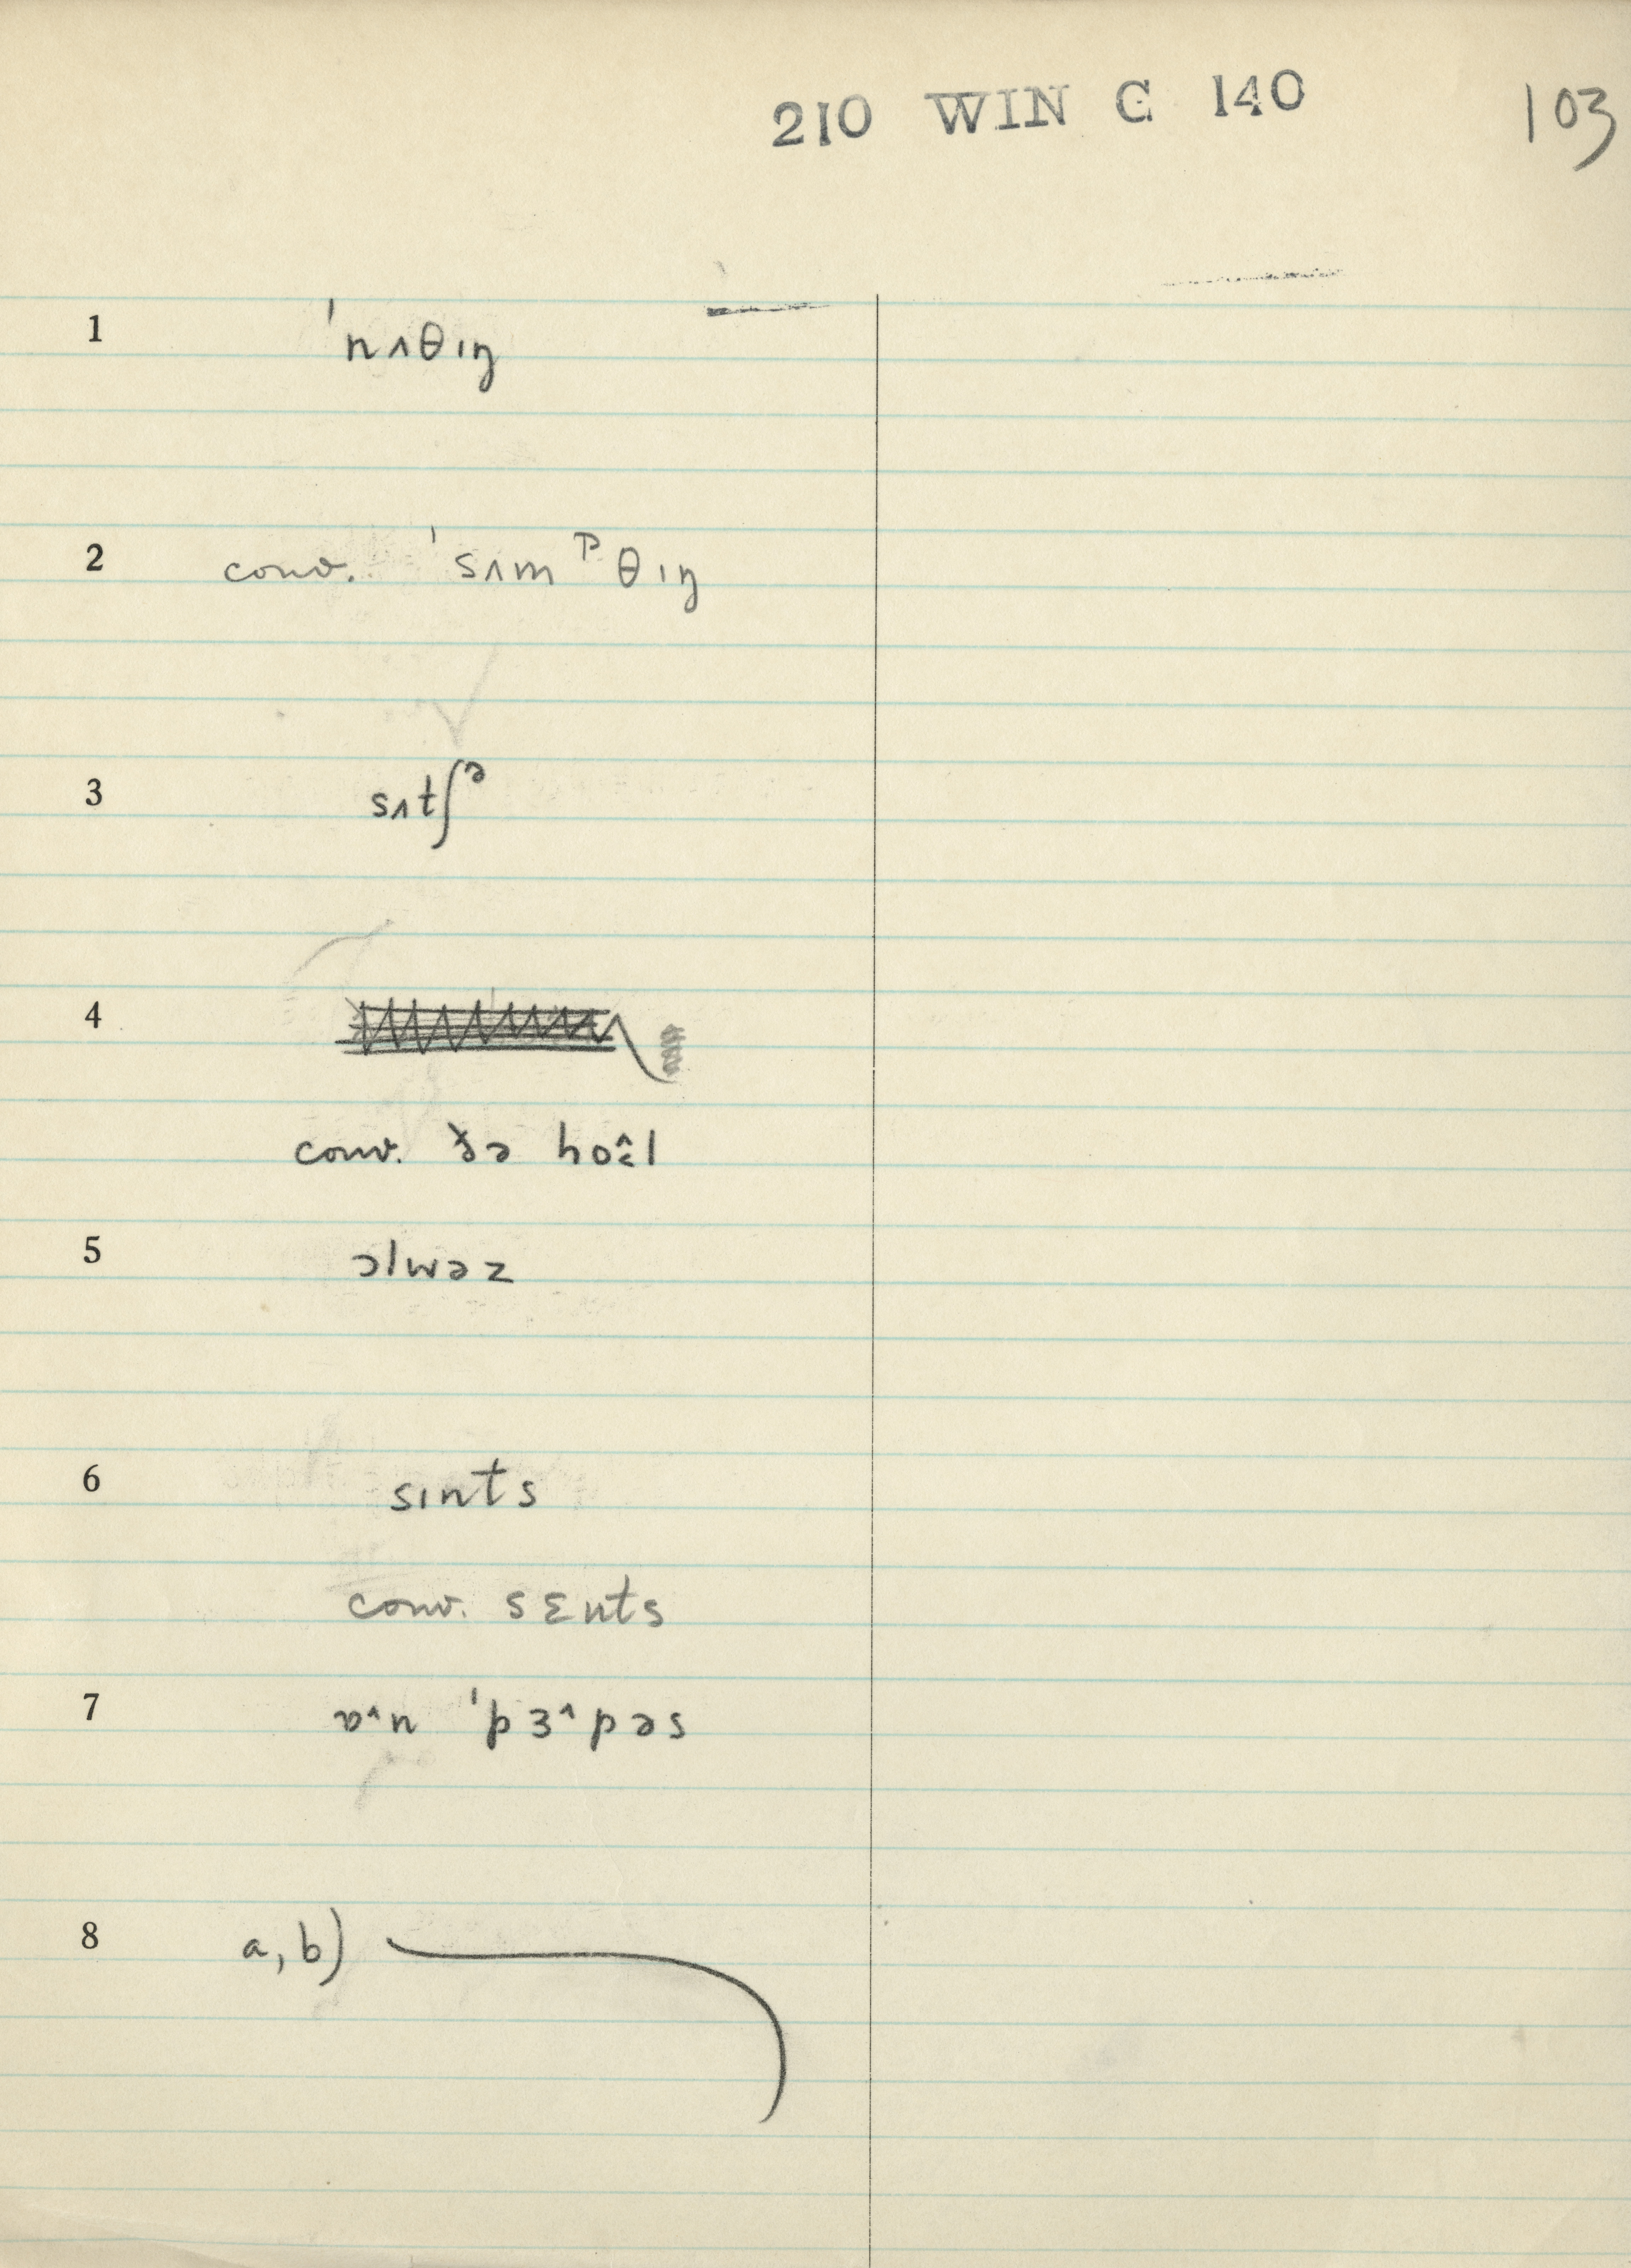 210 WIN C 140 103
1 'nʌθɪŋ
2 conv. 'sʌmᵖθɪŋ
3 sʌtʃᵊ
4
conv. ðə hoˑl
5 ɔlwəz
6 sɪnts
conv. sɛnts
7 ɒˑn 'pɜˑpəs
8 a, b)